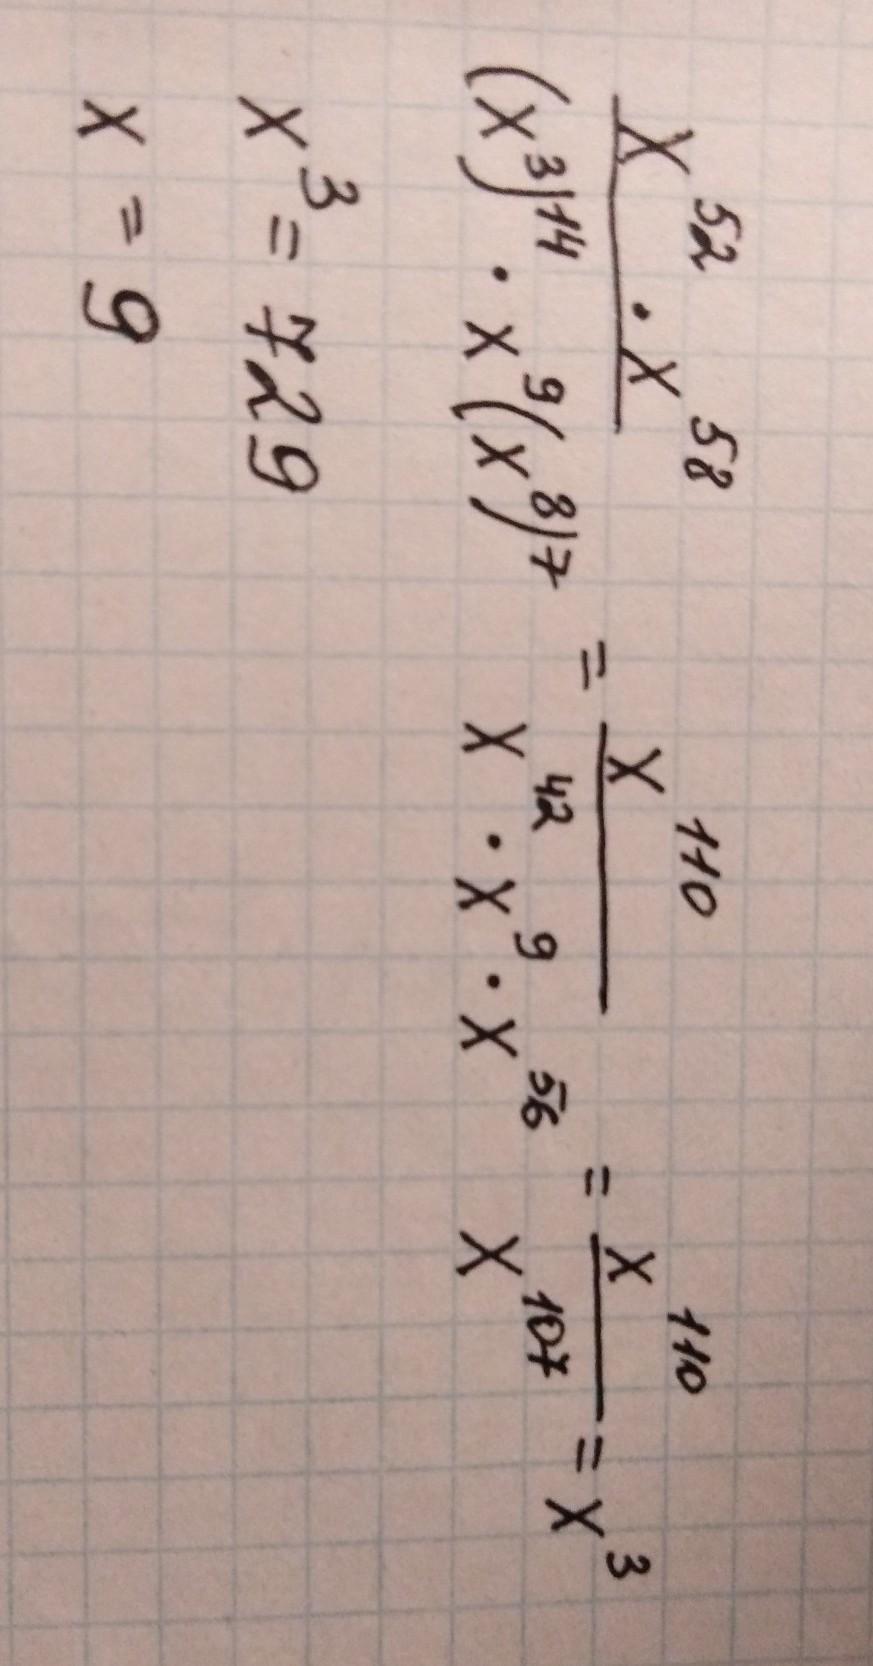 x^52 · x^58 / (x^3)^14 · x^9 (x^8)^7 = x^110 / x^42 · x^9 · x^56 = x^110 / x^107 = x^3
x^3 = 729
x = 9